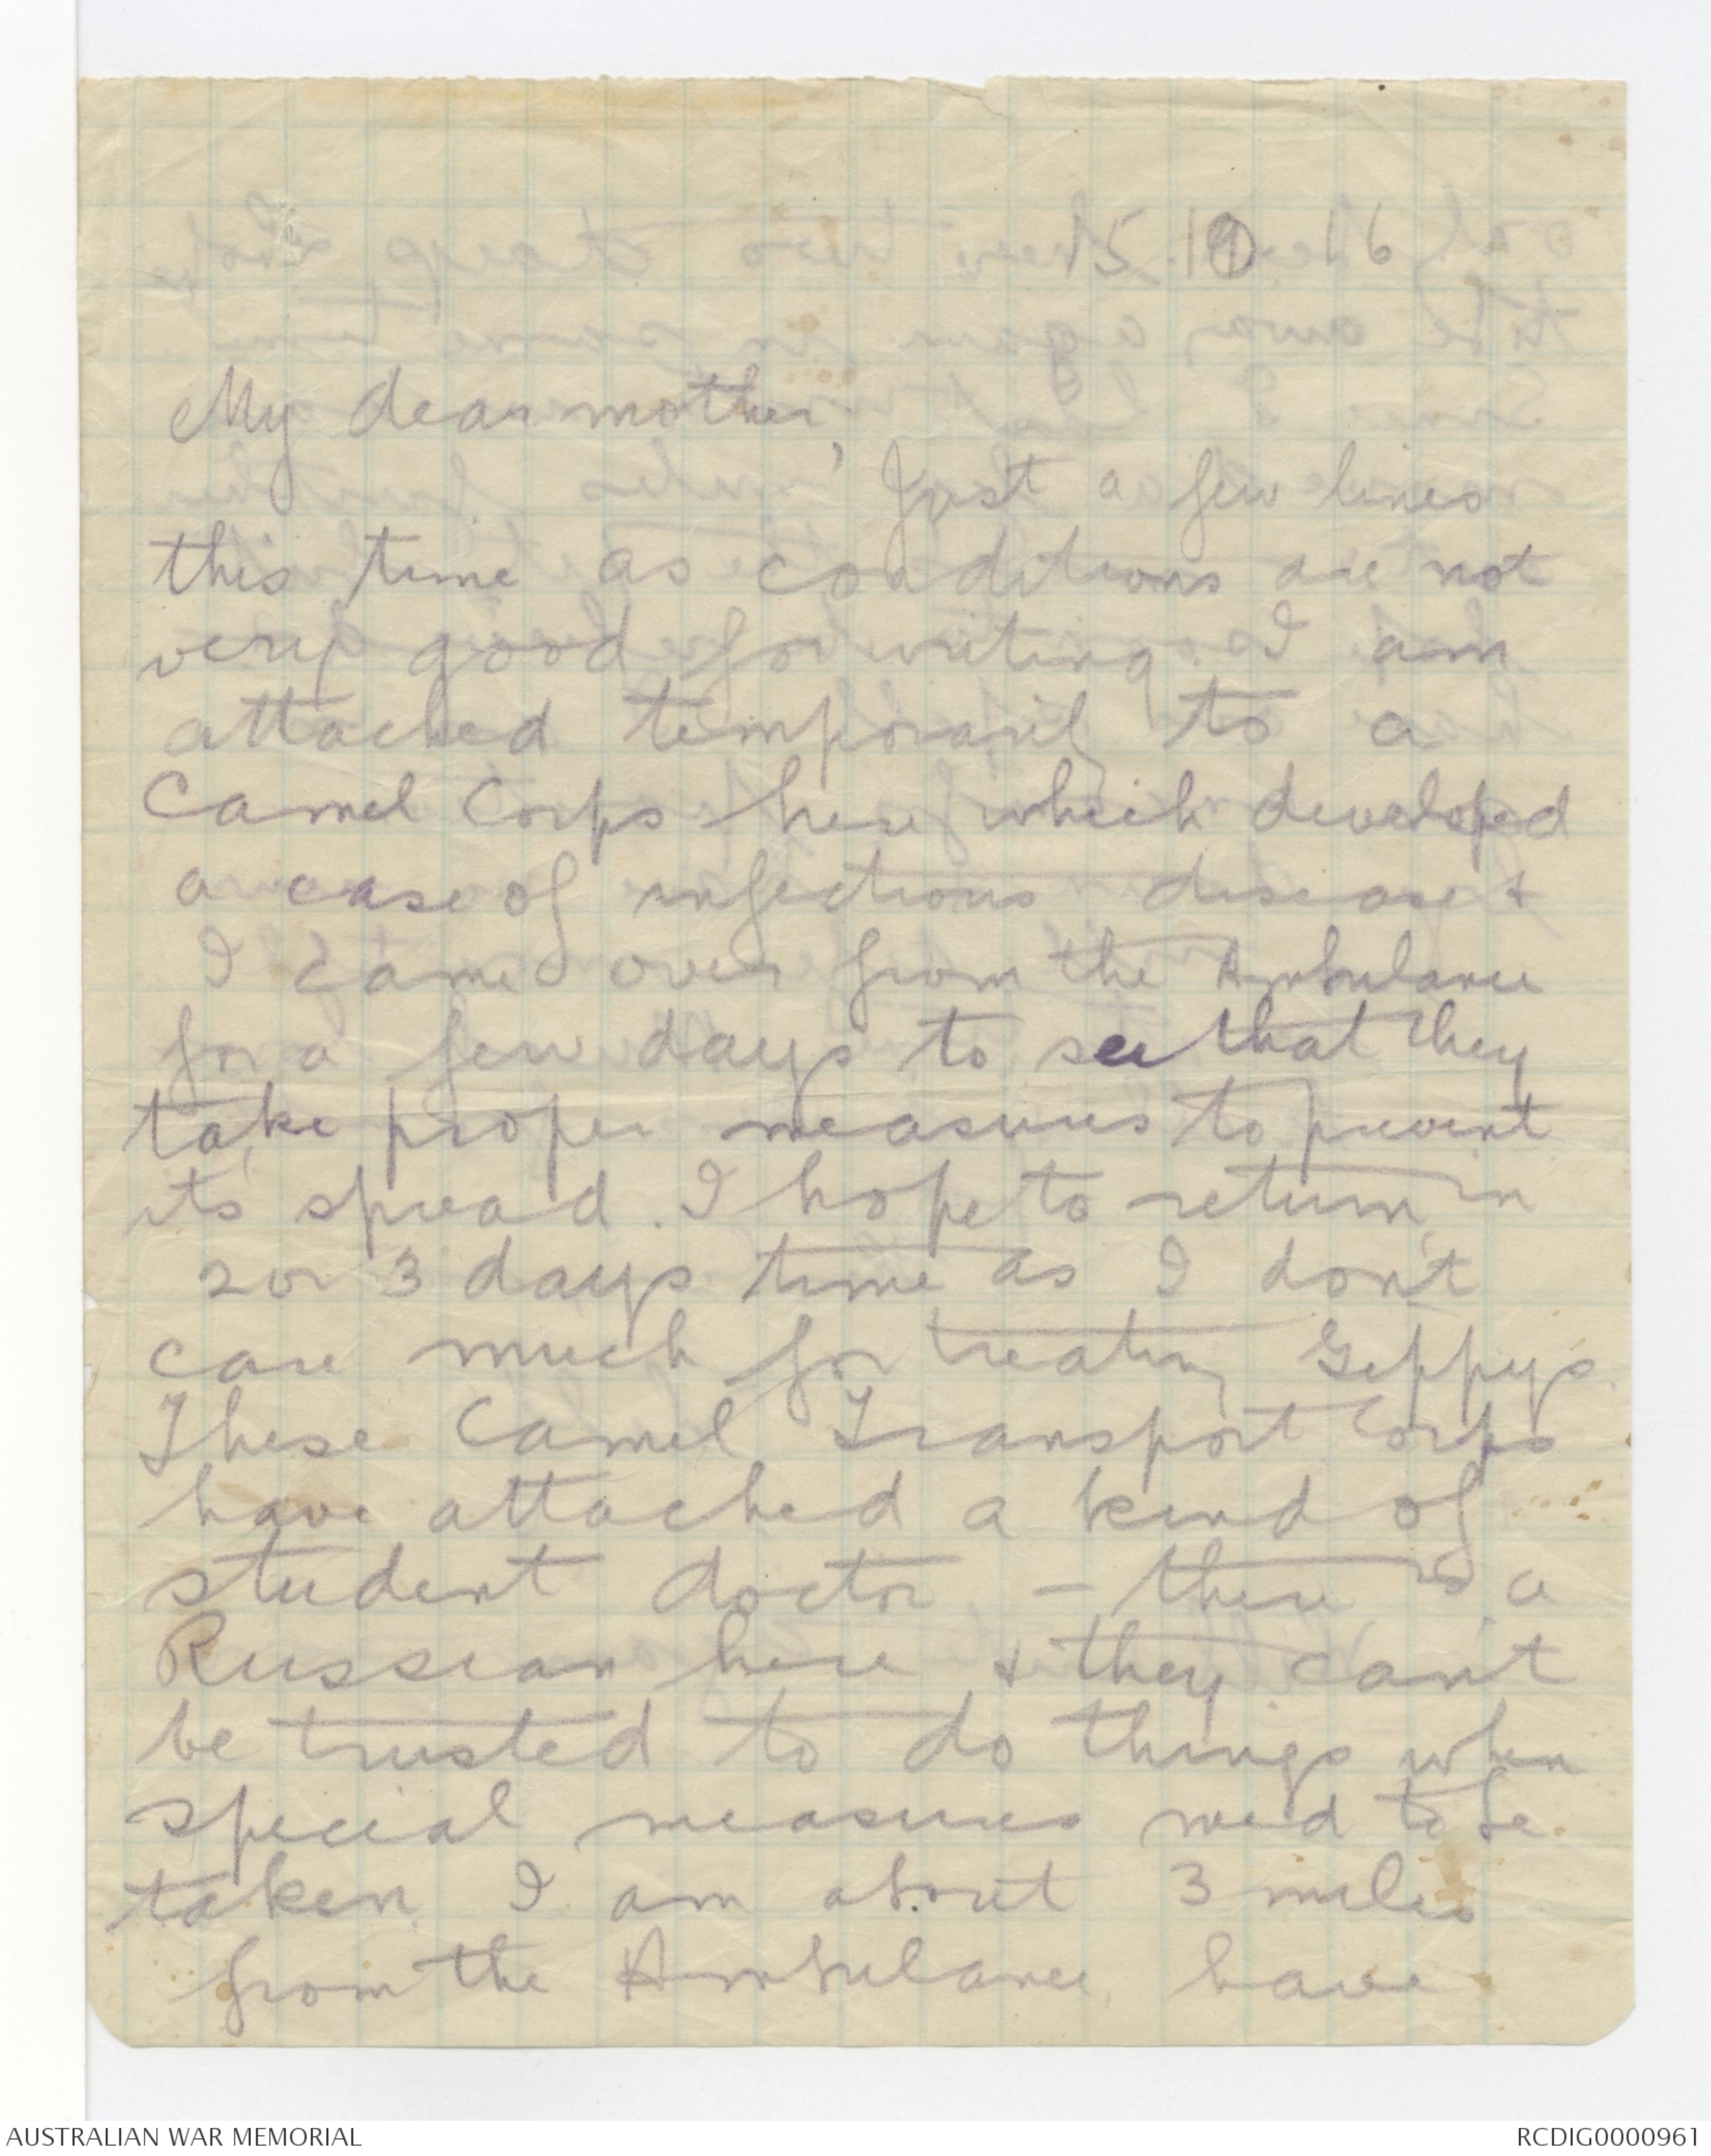 15.10.16
My dear mother,
Just a few lines
this time as conditions are not
very good for writing. I am
attached temporarily to a
Camel Corps here which developed
a case of infectious disease &
I came over from the Ambulance
for a few days to see that they
take proper measures to prevent
its spread. I hope to return in
2 or 3 days time as I don't
care much for treating Gippys.
These Camel Transport Corps
have attached a kind of
student doctor - there is a
Russian here & they can't
be trusted to do things when
special measures need to be
taken. I am about 3 miles
from the Ambulance, have
AUSTRALIAN WAR MEMORIAL
RCDIG0000961